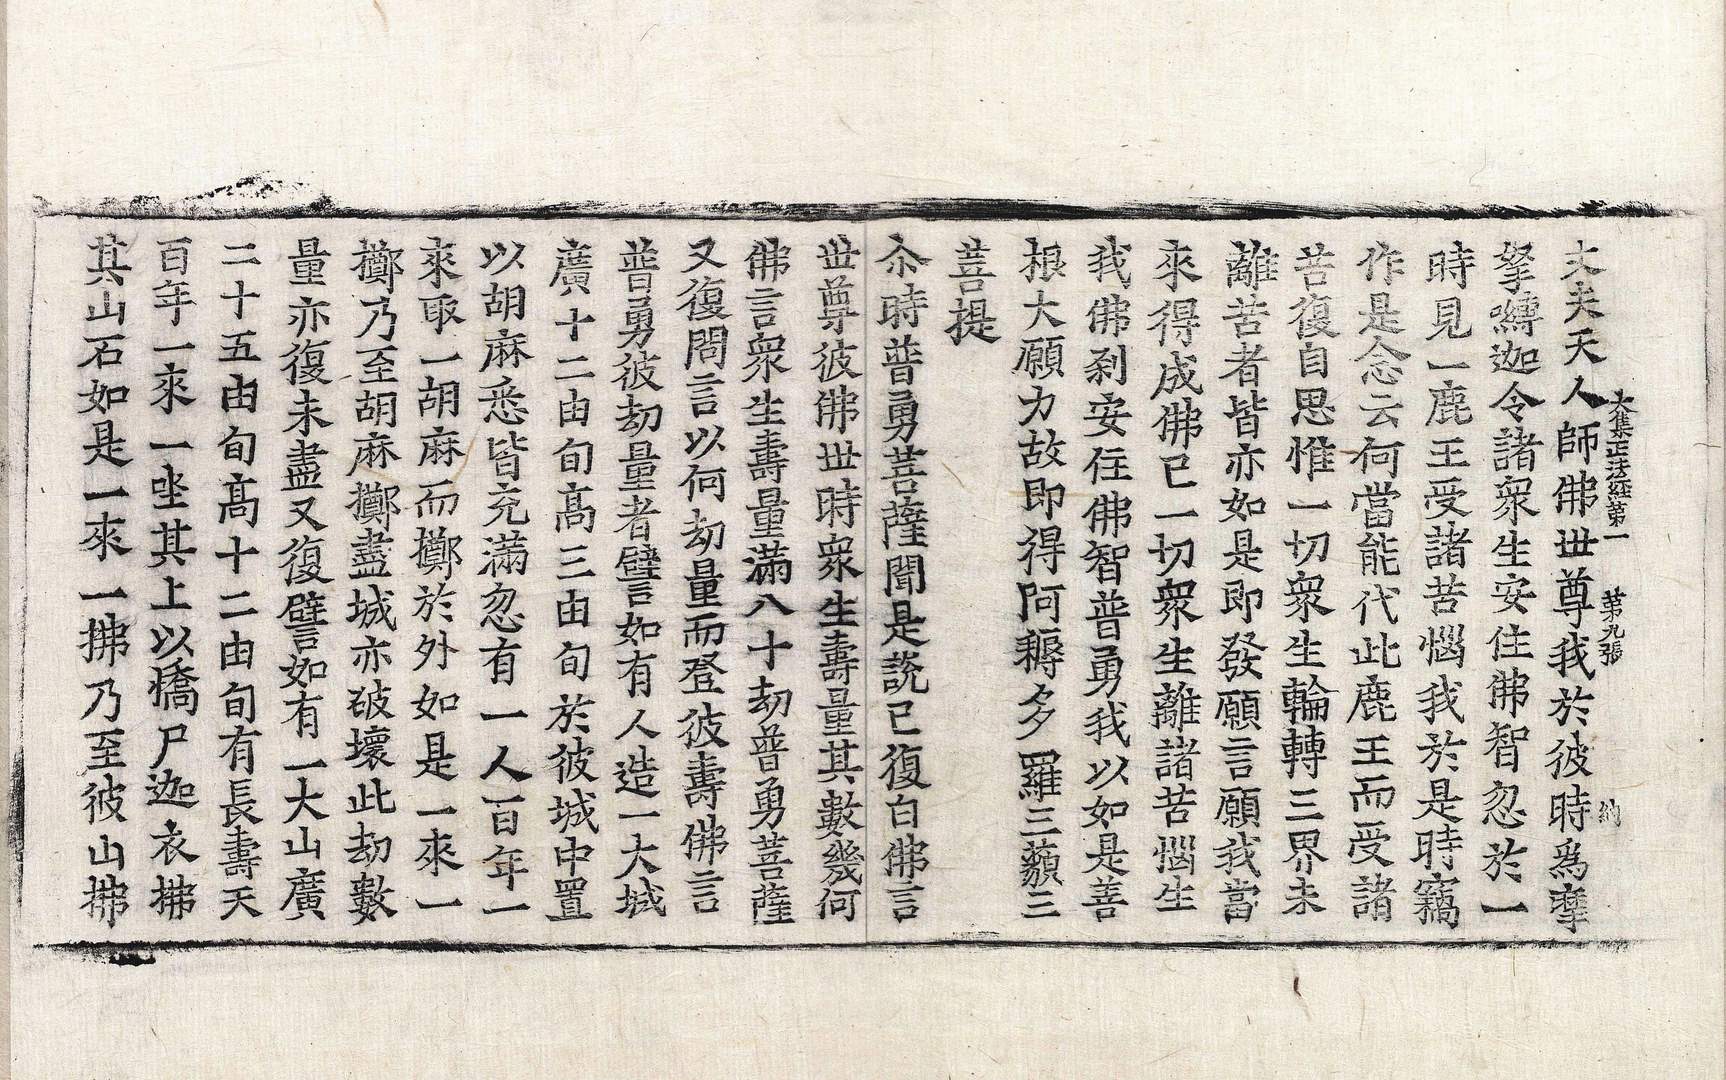 大集正法經第一　第九張　納
丈夫天人師佛世尊我於彼時爲孽
拏嚩迦令諸衆生安住佛智忍於一
時見一鹿王受諸苦惱我於是時竊
作是念云何當能代此鹿王而受諸
苦復自思惟一切衆生輪轉三界未
離苦者皆亦如是即發願言願我當
來得成佛已一切衆生離諸苦惱生
我佛刹安住佛智普勇我以如是善
根大願力故即得阿耨多羅三藐三
菩提
尒時普勇菩薩聞是說已復白佛言
世尊彼佛世時衆生壽量其數幾何
佛言衆生壽量滿八十劫普勇菩薩
又復問言以何劫量而登彼壽佛言
普勇彼劫量者譬如有人造一大城
廣十二由旬高三由旬於彼城中置
以胡麻悉皆充滿忽有一人百年一
來取一胡麻而擲於外如是一來一
擲乃至胡麻擲盡城亦破壞此劫數
量亦復未盡又復譬如有一大山廣
二十五由旬高十二由旬有長壽天
百年一來一坐其上以憍尸迦衣拂
其山石如是一來一拂乃至彼山拂